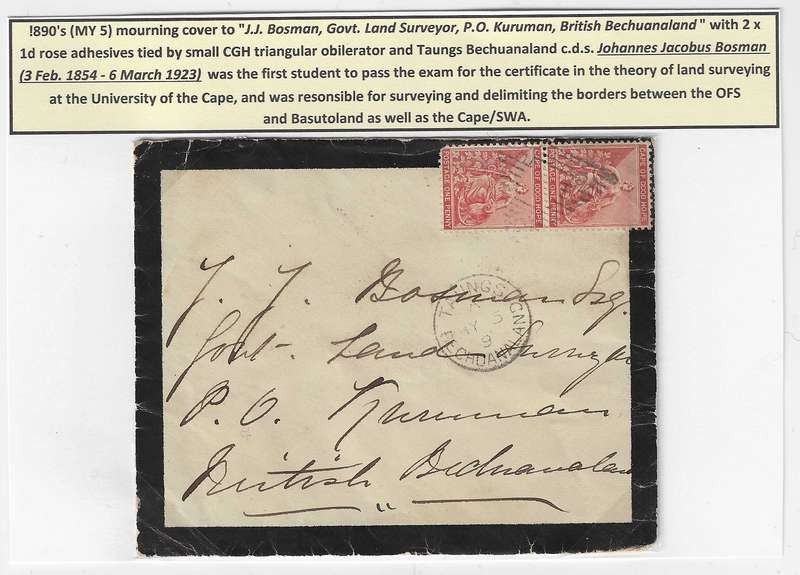 !890's (MY 5) mourning cover to "J.J. Bosman, Govt. Land Surveyor, P.O. Kuruman, British Bechuanaland" with 2 x
1d rose adhesives tied by small CGH triangular obilerator and Taungs Bechuanaland c.d.s. Johannes Jacobus Bosman
(3 Feb. 1854 - 6 March 1923) was the first student to pass the exam for the certificate in the theory of land surveying
at the University of the Cape, and was resonsible for surveying and delimiting the borders between the OFS
and Basutoland as well as the Cape/SWA.
POSTAGE ONE PENNY
CAPE OF GOOD HOPE
POSTAGE ONE PENNY
CAPE OF GOOD HOPE
J. J. Bosman Esq.
TAUNGS
A
MY 5
9
BECHUANALAND
Govt Land Surveyor
P. O. Kuruman
British Bechuanaland